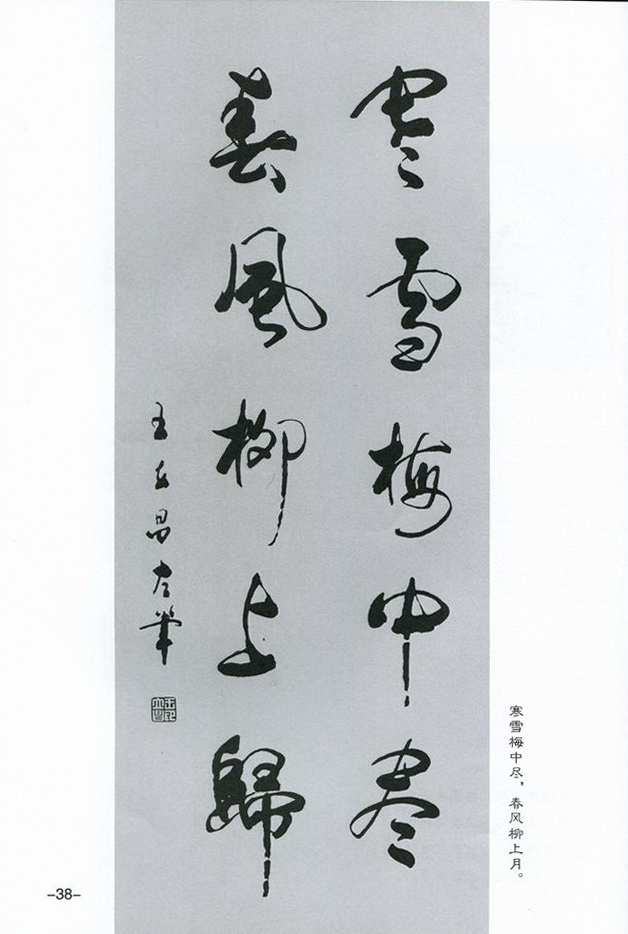 寒雪梅中尽
春風柳上歸
王友昌左筆
寒雪梅中尽，春风柳上月。
-38-